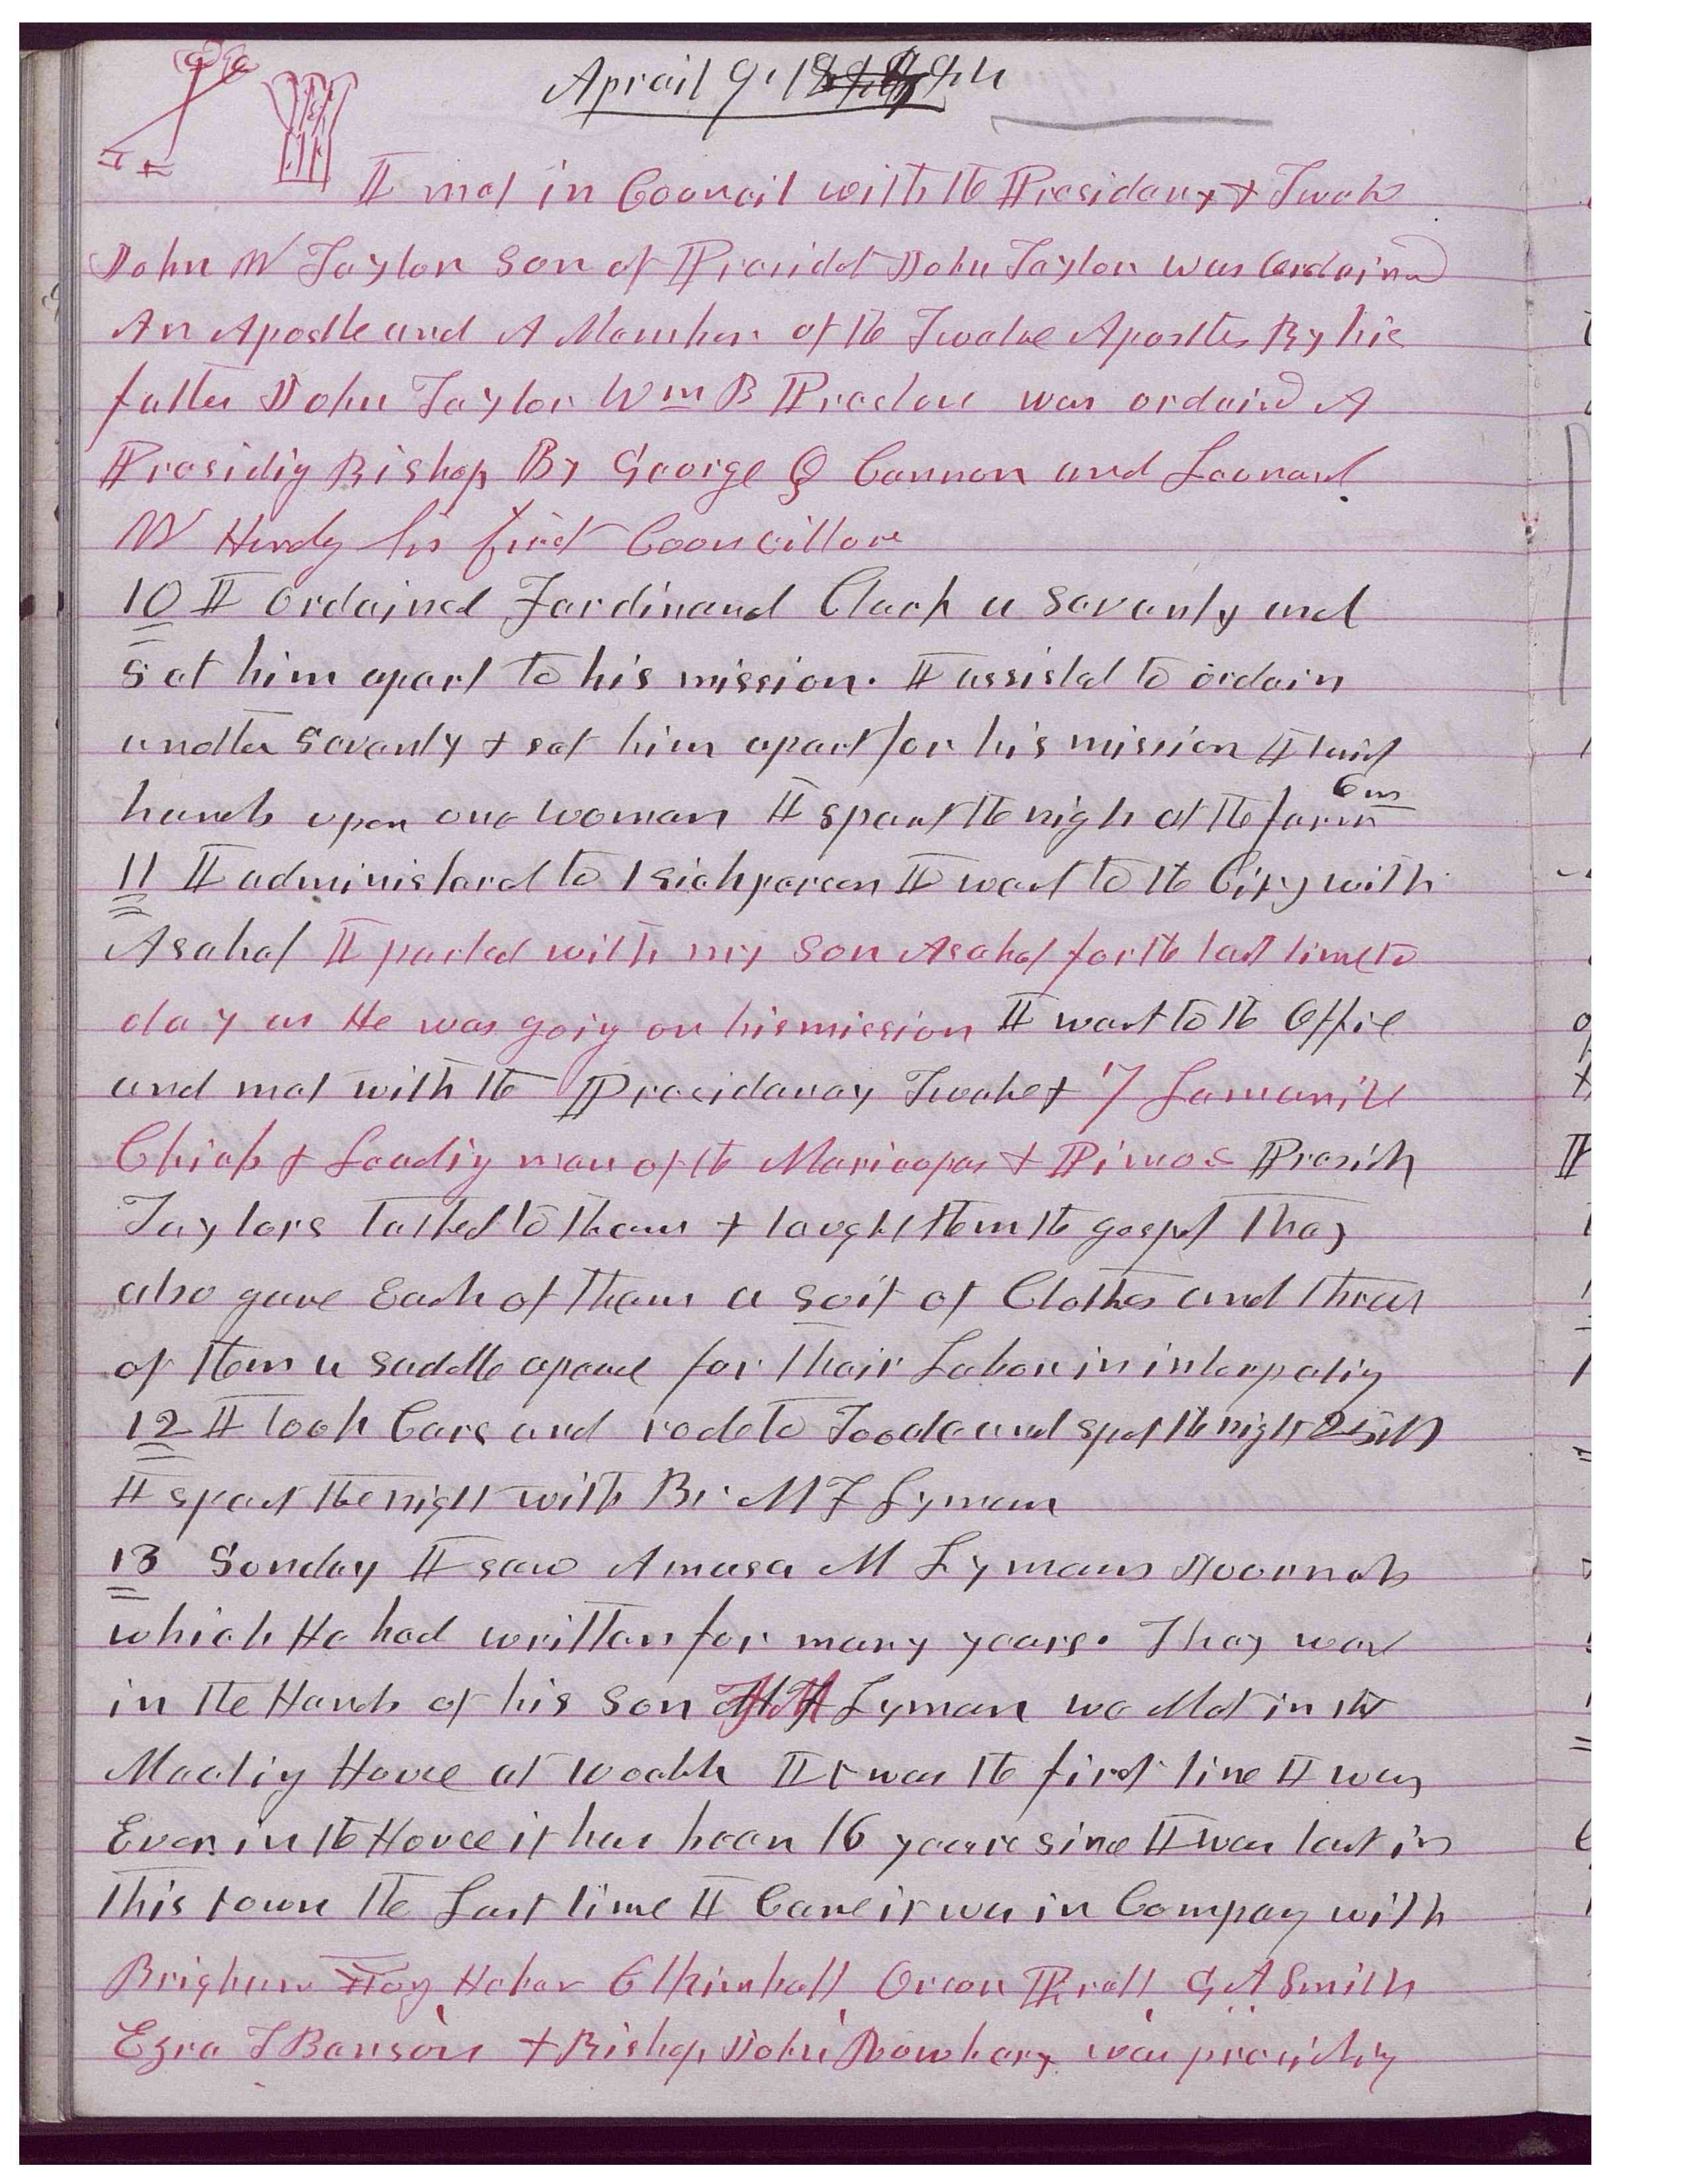 Aprail 9, 1884
I met in Council with the Presidency & Twelve
John W Taylor Son of Presidet John Taylor was ordained
An Apostle and A Member of the Twelve Apostles By his
father John Taylor Wm B Preston was ordaind A
Presidig Bishop By George Q Cannon and Leonard
W Hardy his first Councillore
10 I ordained Ferdinand a Seventy and
Set him apart to his mission. I assisted to ordain
another Seventy & set him apart for his mission I laid
hands upon one woman I spent the nigh at the farm 6 m
11 I administered to 1 sick person I went to the City with
Asahel I parted with my Son Asahel for the last time to
day as He was goig on his mission I went to the Office
and met with the Presidency Twelve & 7 Lamanite
Chiefs & Leadig men of the Maricopas & Pimos Presidt
Taylors talked to them & taught them the gospel They
also gave Each of them a suit of Clothes and three
of them a saddle apeace for their Labor in interpetig
12 I took Cars and rode to Tooele and spet the night 25 M
I spent the night with Br M F Lyman
13 Sunday I saw Amasa M Lymans Journals
which He had written for many years. They were
in the Hands of his Son Lyman we Met in the
Meetig House at Tooele It was the first time I was
Ever in the House it has been 16 years since I was last in
this town the Last time I Came it was in Compay with
Brigham Yog Heber C Kimball Orson Pratt G A Smith
Ezra T Benson & Bishop John Rowbery was presidig